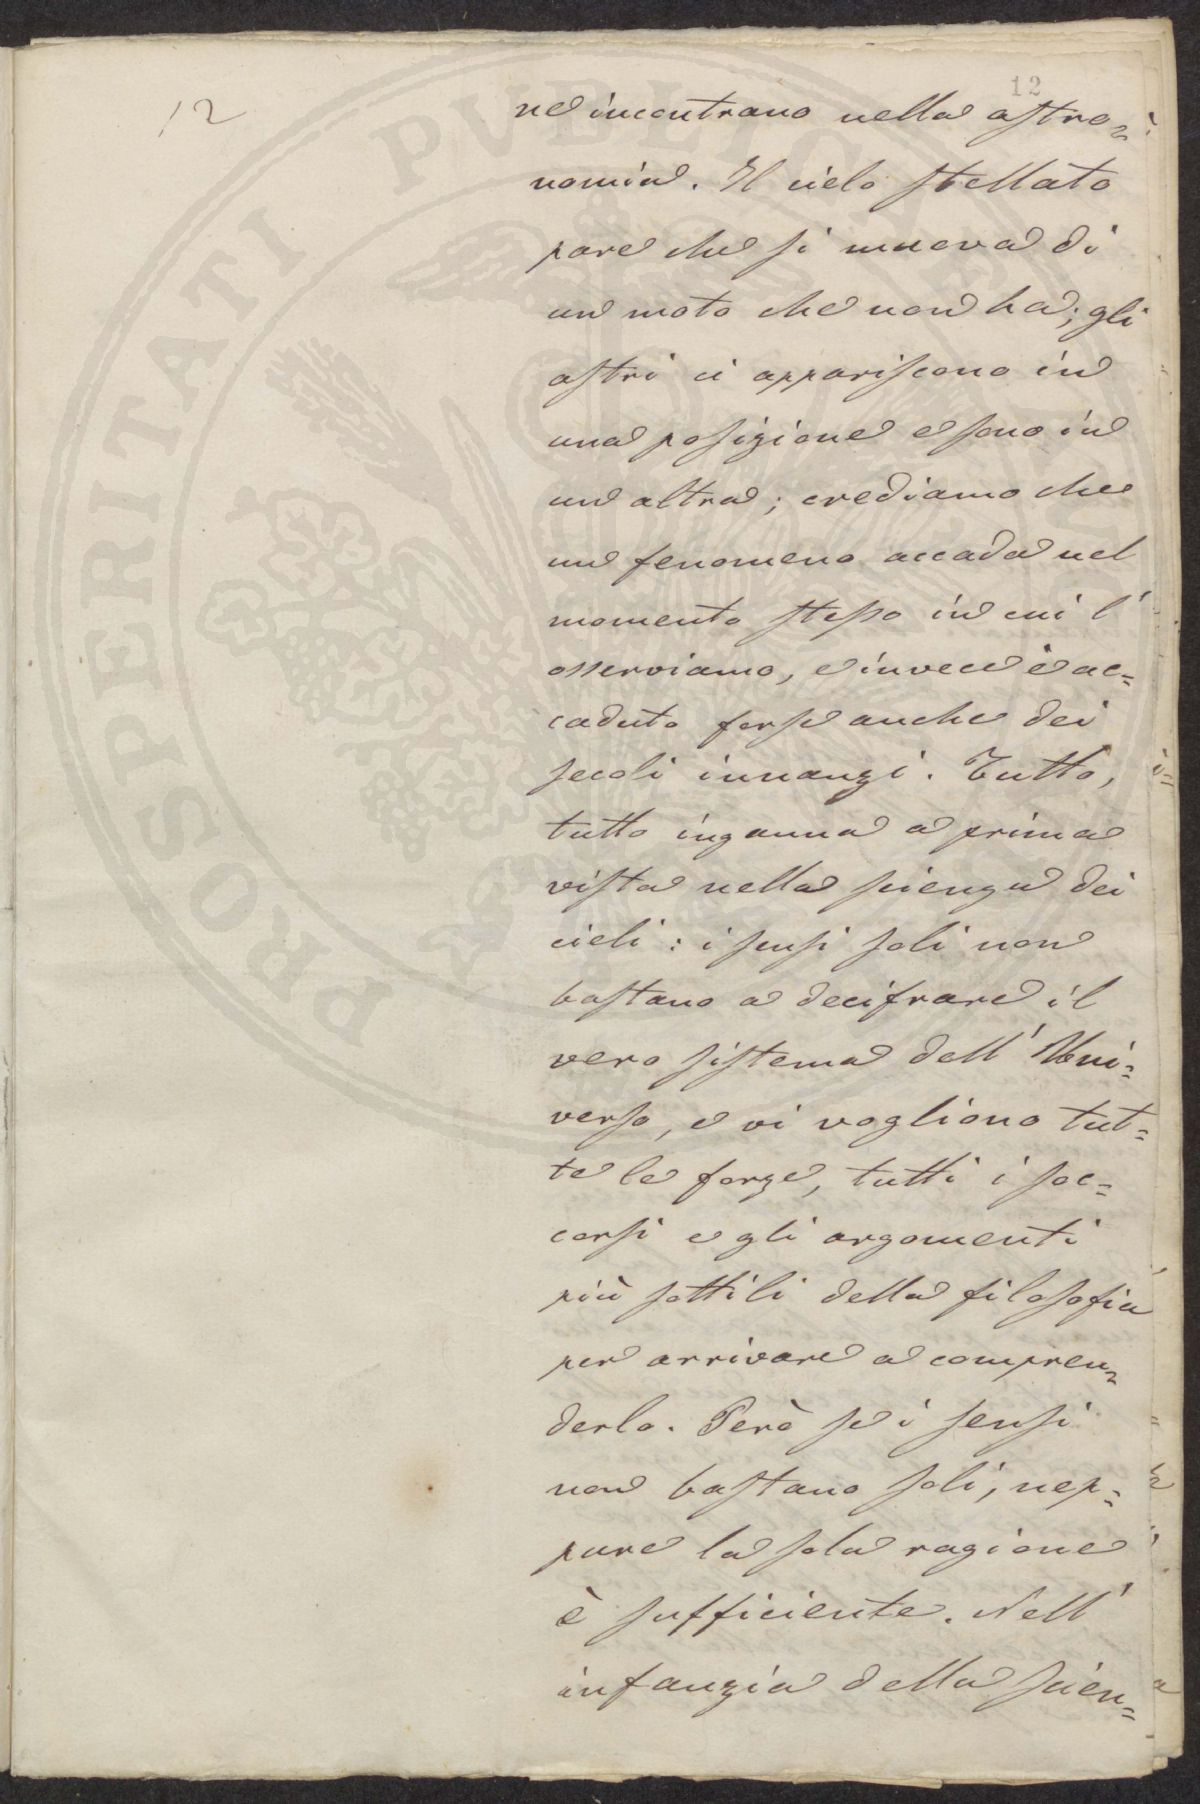 12
12
ne incontrano nella astro=
nomia. Il cielo stellato
pare che si mueva di
un moto che non ha; gli
astri ci appariscono in
una posizione e sono in
un altra; crediamo che
un fenomeno accada nel
momento stesso in cui l'
osserviamo, e invece è ac=
caduto forse anche dei
secoli innanzi. Tutto,
tutto inganna a prima
vista nella scienza dei
cieli: i sensi soli non
bastano a decifrare il
vero sistema dell' Uni=
verso, e vi vogliono tut=
te le forze, tutti i soc=
corsi e gli argomenti
più sottili della filosofia
per arrivare a compren=
derlo. Però se i sensi
non bastano soli, nep=
pure la sola ragione
è sufficiente. Nell'
infanzia della scien=
PROSPERITATI PUBLICAE